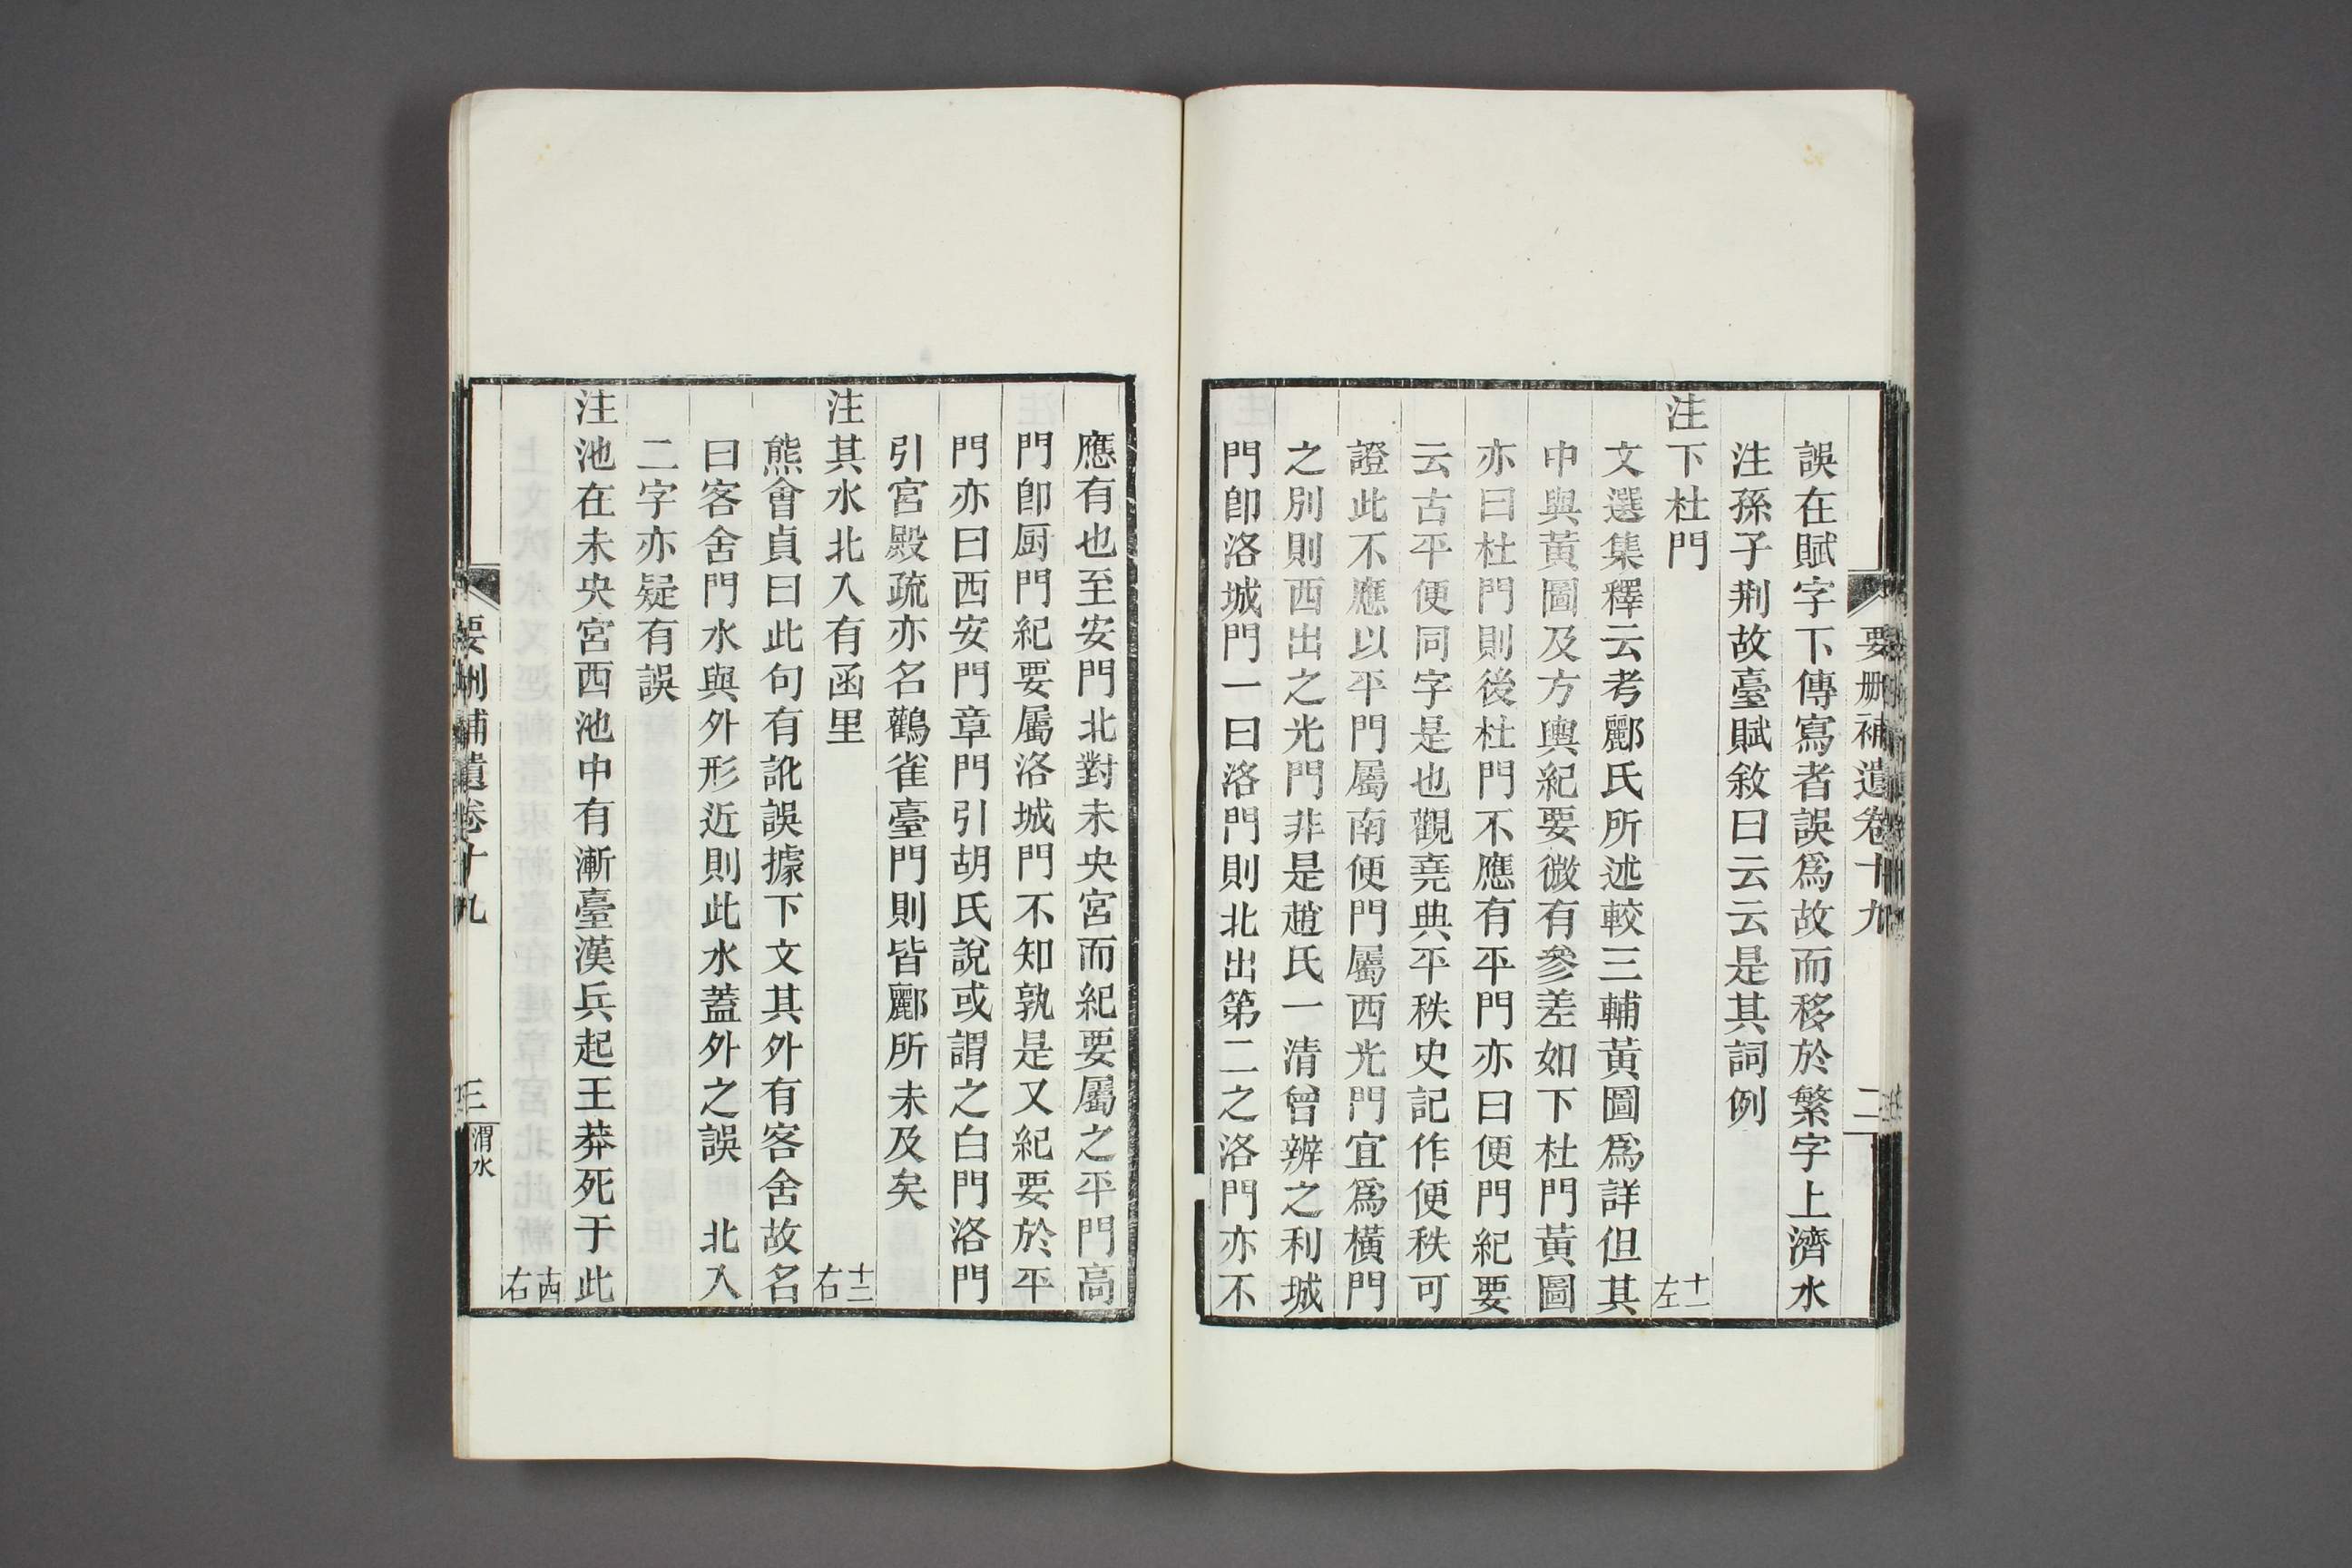 要刪補遺卷十九 二
誤在賦字下傳寫者誤爲故而移於繁字上濟水
注孫子荆故臺賦敘曰云云是其詞例
注下杜門 十一左
文選集釋云考酈氏所述較三輔黃圖爲詳但其
中與黃圖及方輿紀要微有參差如下杜門黃圖
亦曰杜門則後杜門不應有平門亦曰便門紀要
云古平便同字是也觀堯典平秩史記作便秩可
證此不應以平門屬南便門屬西光門宜爲橫門
之別則西出之光門非是趙氏一清曾辨之利城
門卽洛城門一曰洛門則北出第二之洛門亦不
應有也至安門北對未央宮而紀要屬之平門高
門卽厨門紀要屬洛城門不知孰是又紀要於平
門亦曰西安門章門引胡氏說或謂之白門洛門
引宮殿疏亦名鸛雀臺門則皆酈所未及矣
注其水北入有函里 十二右
熊會貞曰此句有訛誤據下文其外有客舍故名
曰客舍門水與外形近則此水蓋外之誤 北入
二字亦疑有誤
注池在未央宮西池中有漸臺漢兵起王莽死于此
十四右
要刪補遺卷十九 三 渭水